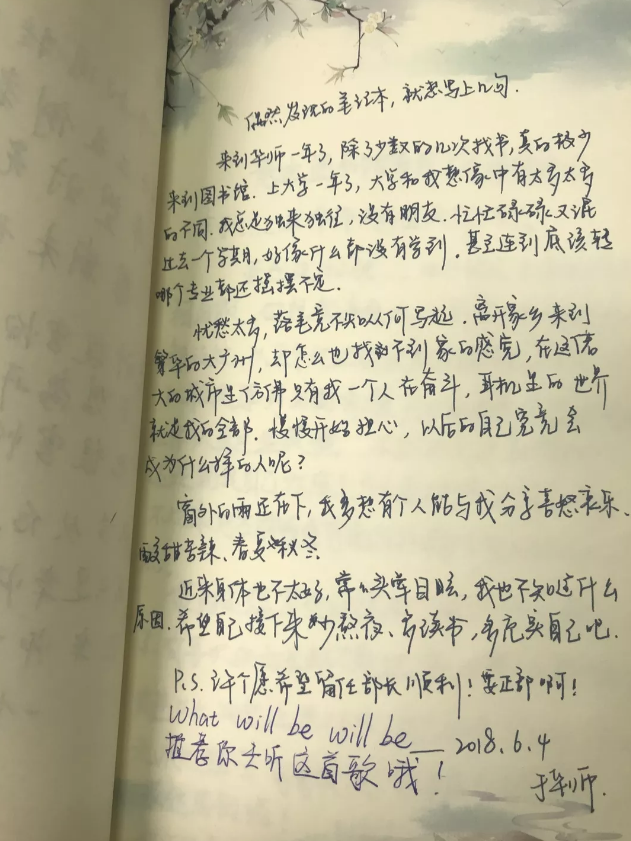 偶然发现的笔记本，就想写上几句．
来到华师一年了，除了少数的几次找书，真的极少
来到图书馆．上大学一年了，大学和我想像中有太多太多
的不同．我总是独来独往，没有朋友．忙忙碌碌又混
过去一个学期，好像什么都没有学到．甚至连到底该转
哪个专业都还摇摆不定．
忧愁太多，落笔竟不知从何写起．离开家乡来到
繁华的大广州，却怎么也找不到家的感觉，在这偌
大的城市里仿佛只有我一个人在奋斗，耳机里的世界
就是我的全部．慢慢开始担心，以后的自己究竟会
成为什么样的人呢？
窗外的雨还在下，我多想有个人能与我分享喜怒哀乐、
酸甜苦辣、春夏秋冬
近来身体也不太好，常头晕目眩，我也不知这什么
原因．希望自己接下来少熬夜、多读书，多充实自己吧．
P.S. 许个愿希望留任部长顺利！要正部啊！
What will be will be__ 2018.6.4
推荐你去听这首歌哦！ 于华师．